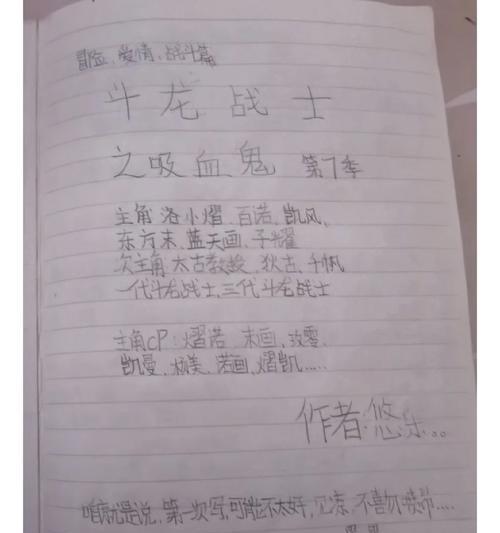 冒险、爱情、战斗篇
斗龙战士
之吸血鬼 第7季
主角 洛小熠、百诺、凯风、
东方末、蓝天画、子耀
次主角 太古教授、狄古、千帆
一代斗龙战士,三代斗龙战士
主角CP:熠诺、末画、孜零、
凯曼、杨美、诺画、熠凯……
作者:悠乐。。
咱就是说,第一次写,可能不太好,见谅,不喜勿喷